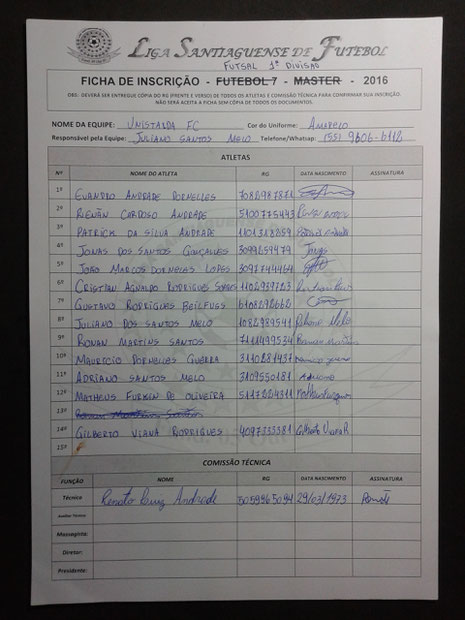 LIGA SANTIAGUENSE DE FUTEBOL
FUTSAL 1ª DIVISÃO
FICHA DE INSCRIÇÃO - FUTEBOL 7 - MASTER - 2016
OBS: DEVERÁ SER ENTREGUE CÓPIA DO RG (FRENTE E VERSO) DE TODOS OS ATLETAS E COMISSÃO TÉCNICA PARA CONFIRMAR SUA INSCRIÇÃO.
NÃO SERÁ ACEITA A FICHA SEM CÓPIA DE TODOS OS DOCUMENTOS.
NOME DA EQUIPE: UNISTALDA FC Cor do Uniforme: AMARELO
Responsável pela Equipe: JULIANO SANTOS MELO Telefone/Whatsap: (55) 9606-6112
ATLETAS
Nº NOME DO ATLETA RG DATA NASCIMENTO ASSINATURA
1º EVANDRO ANDRADE DORNELLES 7082987871
2º RENAN CARDOSO ANDRADE 5100775443
3º PATRICK DA SILVA ANDRADE 1101318859
4º JONAS DOS SANTOS GONÇALVES 3099659479 Jonas
5º JOÃO MARCOS DORNELES LOPES 3097744464
6º CRISTIAN AGNALDO RODRIGUES 1102939723
7º GUSTAVO RODRIGUES BEILFUGS 6108292662
8º JULIANO DOS SANTOS MELO 1082989541 Melo
9º RONAN MARTINS SANTOS 7111499534
10º MAURICIO DORNELLES GUERRA 3110281437
11º ADRIANO SANTOS MELO 3109550181 Adriano
12º MATHEUS FURKIN DE OLIVEIRA 5117224311
13º
14º GILBERTO VIANA RODRIGUES 4097333381 Gilberto Viana R.
15º
COMISSÃO TÉCNICA
FUNÇÃO NOME RG DATA NASCIMENTO ASSINATURA
Técnico Renato Ruiz Andrade 5059965094 29/03/1973
Auxiliar Técnico:
Massagista:
Diretor:
Presidente: